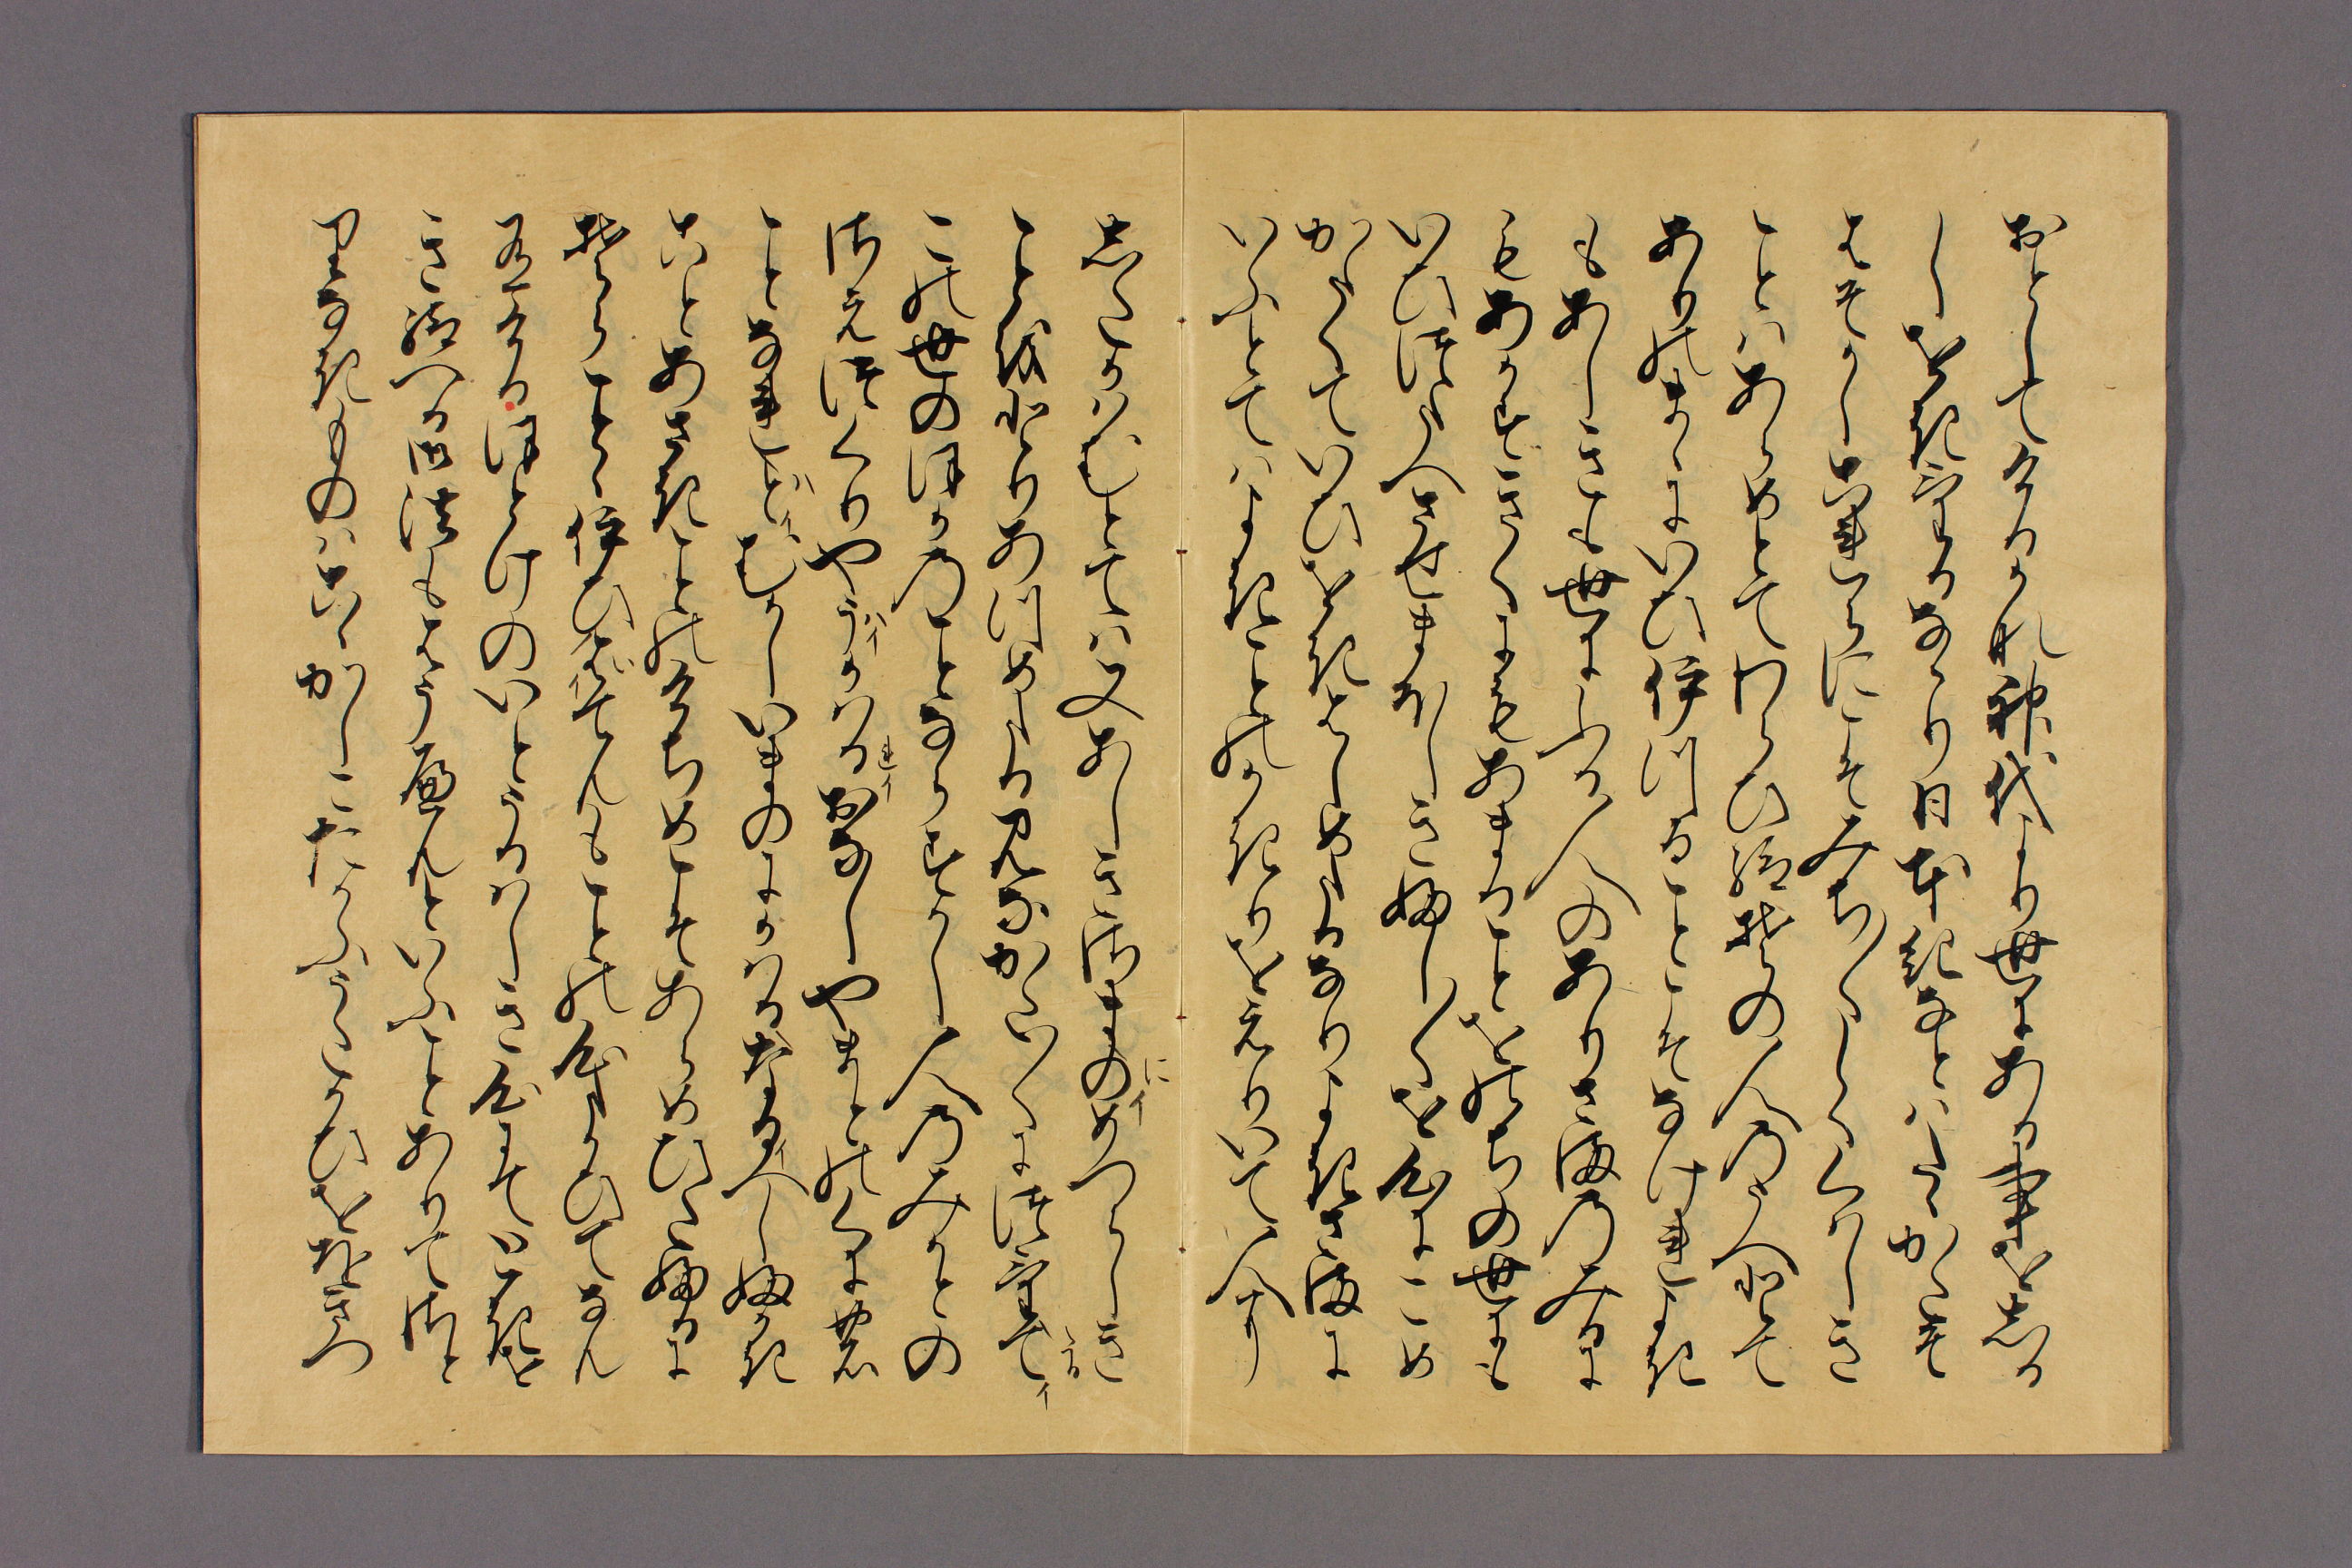 おとしてけるかな神代より世にある事をしる
しをきけるなゝり日本紀なとはたゝかたそ
はそかしこれらにこそみち／＼しくくはしき
ことはあらめとてわらひ給その人のうへとて
ありのまゝにいひいつることこそなけれよき
もあしきも世にふる人のありさまのみるに
もあかすきくにもあまることをのちの世にも
いひつたへさせまほしきふし／＼を心にこめ
かたくていひをきはしめたるなりよきさまに
いふとてはよきことのかきりをえりいてゝ人に
したかはむとては又あしきさまのめつらしき
ことをとりあつめたるみなかた／＼につけて
この世のほかのことならすかし人のみかとの
さえつくりやうかはるおなしやまとのくにの
ことなれとむかしいまのにかはるなるへしふかき
ことあさきことのけちめこそあらめひたふるに
そらことゝいひはてんもことの心たかひてなん
ありけるほとけのいとうるはしき心にてときを
き給へる御法もはうへんといふことありてさと
りなきものはこゝかしこたかふうたかひをおきつ